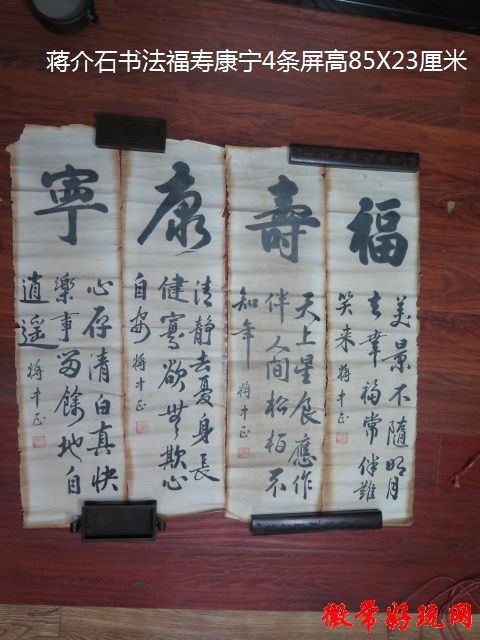 蒋介石书法福寿康宁4条屏高85X23厘米
福
美景不随明月
去幸福常伴難
笑来 蒋中正
壽
天上星辰應作
伴人間松柏不
知年 蒋中正
康
清静去憂身長
健寡欲無欺心
自安 蒋中正
寧
心存清白真快
樂事留餘地自
逍遥 蒋中正
徽常好玩网